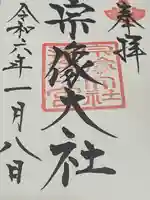 奉拝
宗像大社
令和六年一月八日